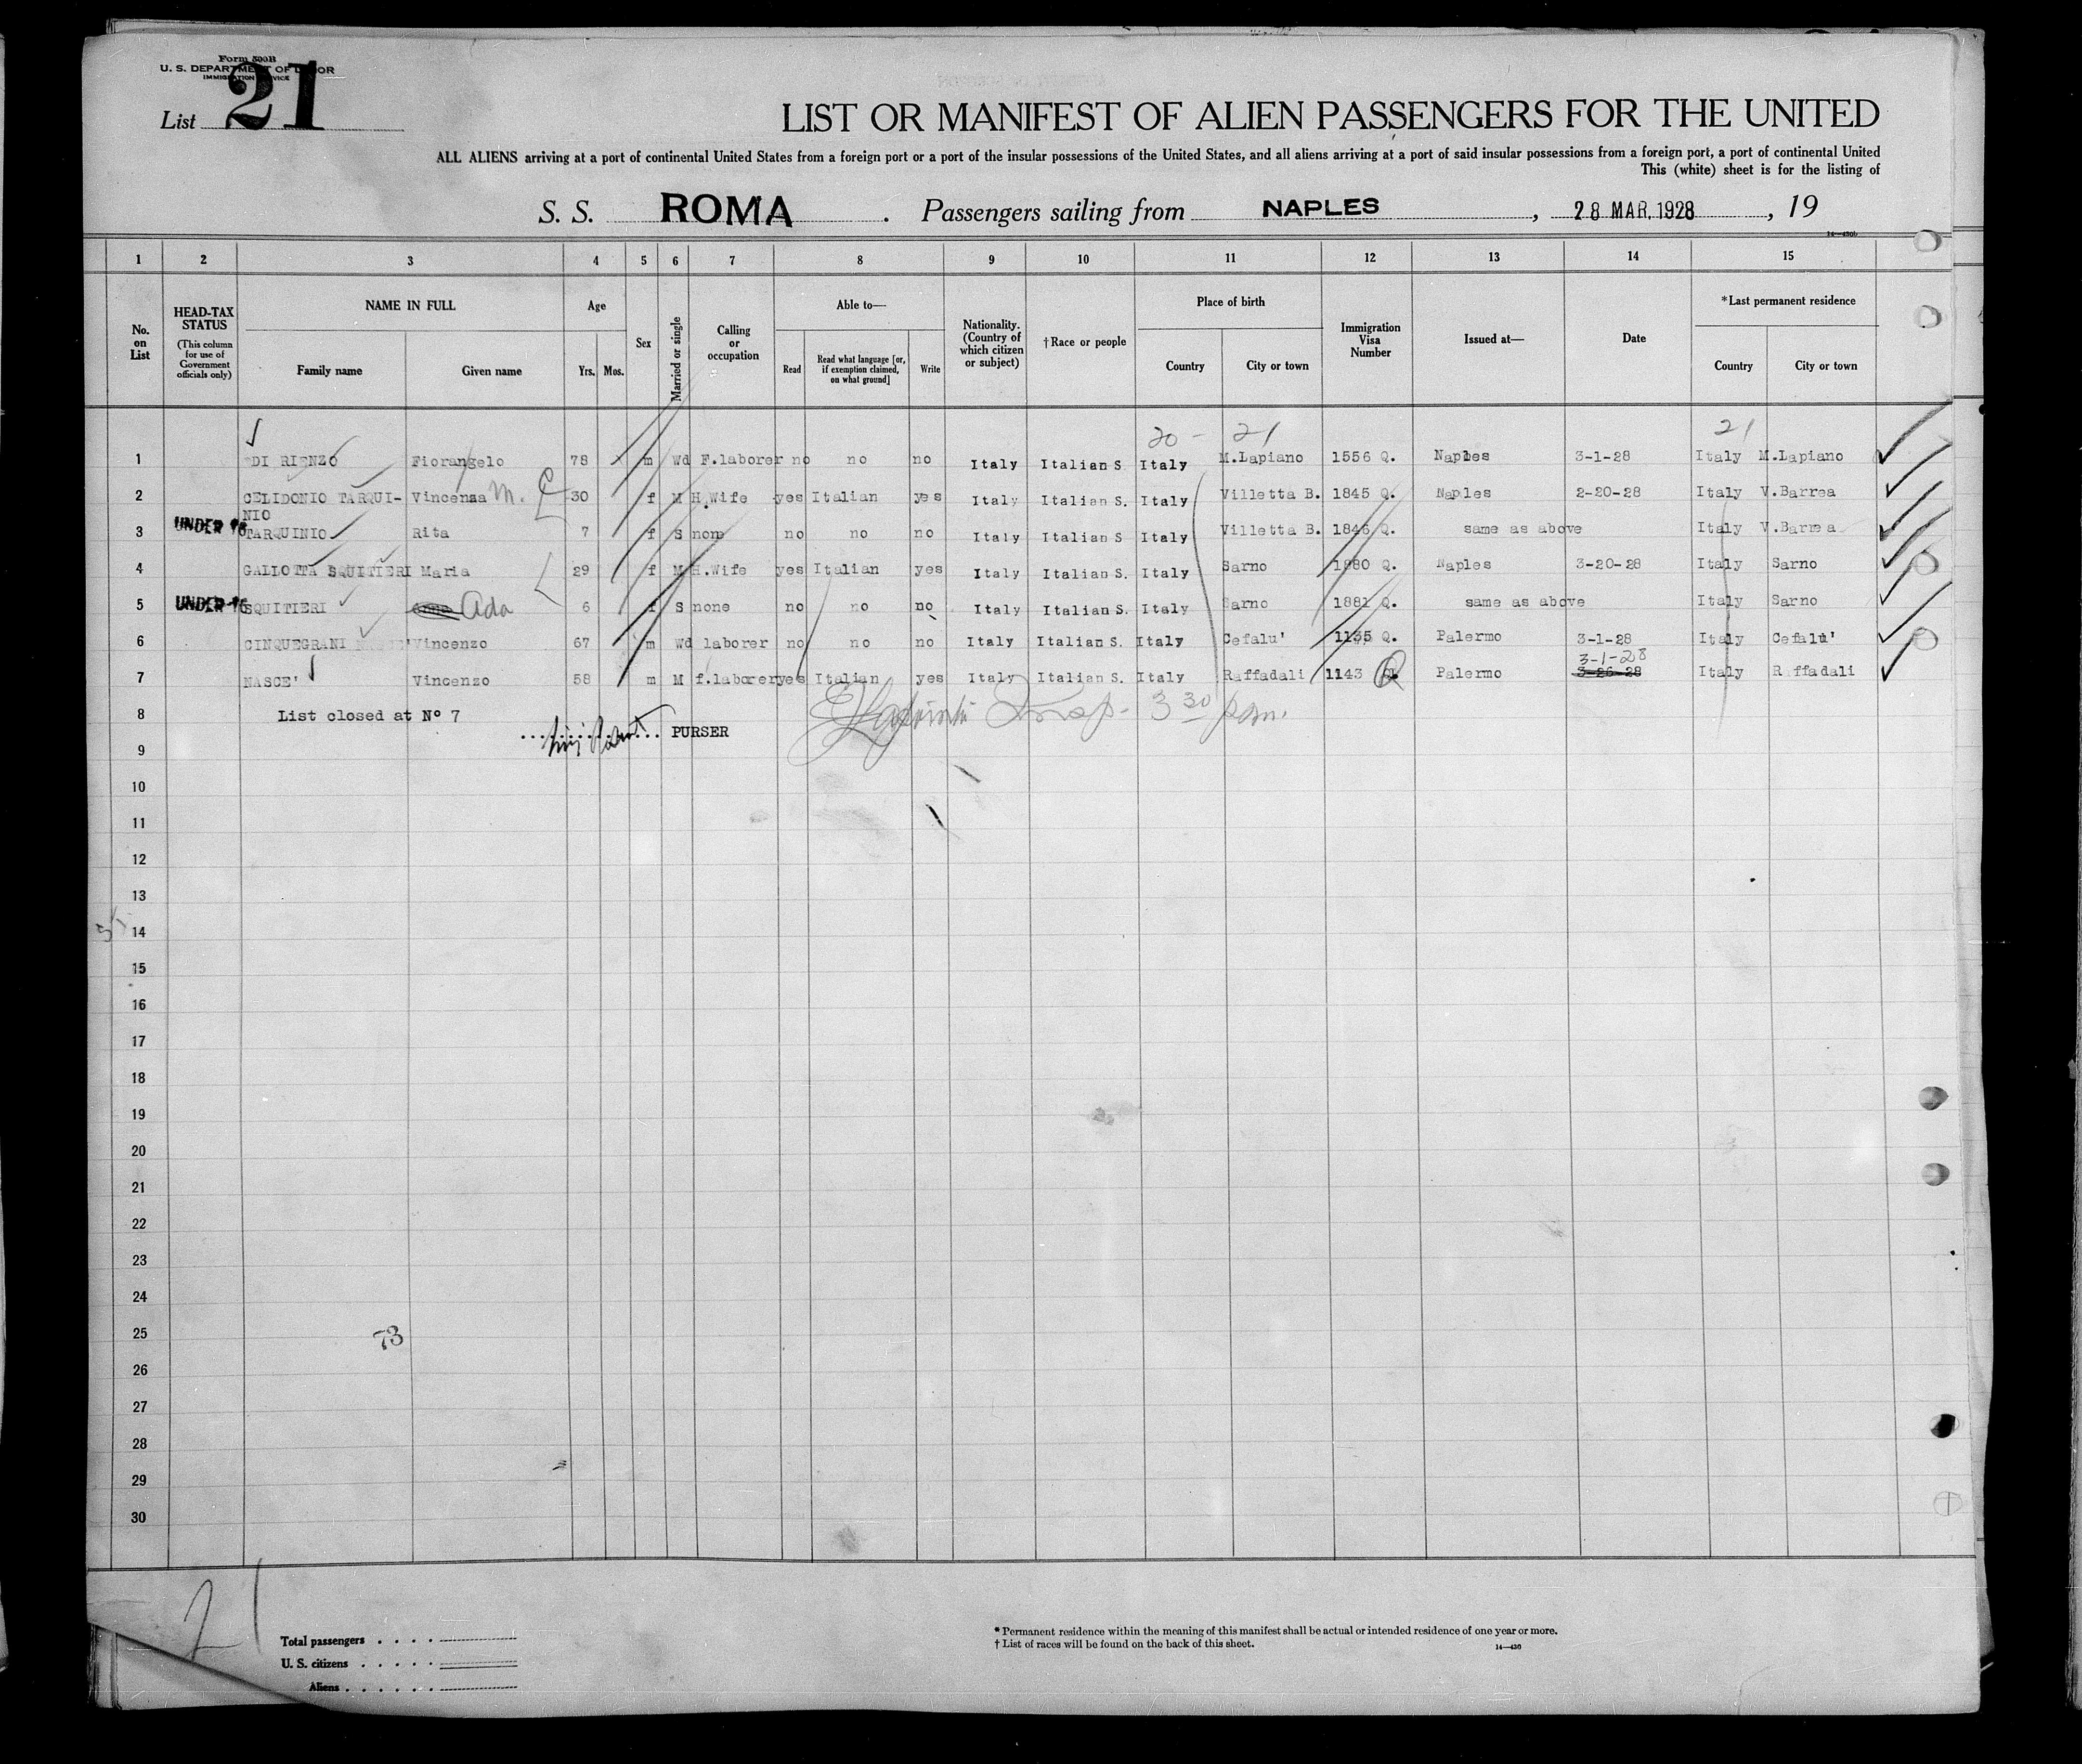 Form 500B
U. S. DEPARTMENT OF LABOR
IMMIGRATION SERVICE
List 21
LIST OR MANIFEST OF ALIEN PASSENGERS FOR THE UNITED
ALL ALIENS arriving at a port of continental United States from a foreign port or a port of the insular possessions of the United States, and all aliens arriving at a port of said insular possessions from a foreign port, a port of continental United
This (white) sheet is for the listing of
S. S. ROMA . Passengers sailing from NAPLES , 28 MAR. 1928 , 19
14—430b
1 2 3 4 5 6 7 8 9 10 11 12 13 14 15
No. on List
HEAD-TAX STATUS (This column for use of Government officials only)
NAME IN FULL Family name Given name
Age Yrs. Mos.
Sex
Married or single
Calling or occupation
Able to— Read Read what language [or, if exemption claimed, on what ground] Write
Nationality. (Country of which citizen or subject)
†Race or people
Place of birth Country City or town
Immigration Visa Number
Issued at—
Date
*Last permanent residence Country City or town
20 - 21 21
1 DI RIENZO Fiorangelo 78 m Wd F.laborer no no no Italy Italian S Italy M.Lapiano 1556 Q. Naples 3-1-28 Italy M.Lapiano
2 CELIDONIO TARQUI- Vincenza M. 30 f M H.Wife yes Italian yes Italy Italian S. Italy Villetta B. 1845 Q. Naples 2-20-28 Italy V.Barrea
NIO
3 UNDER 16 TARQUINIO Rita 7 f S none no no no Italy Italian S Italy Villetta B. 1846 Q. same as above Italy V.Barrea
4 GALLOTTA SQUITIERI Maria 29 f M H.Wife yes Italian yes Italy Italian S. Italy Sarno 1880 Q. Naples 3-20-28 Italy Sarno
5 UNDER 16 SQUITIERI Ada 6 f S none no no no Italy Italian S. Italy Sarno 1881 Q. same as above Italy Sarno
6 CINQUEGRANI Vincenzo 67 m Wd laborer no no no Italy Italian S. Italy Cefalu' 1135 Q. Palermo 3-1-28 Italy Cefalu'
3-1-28
7 NASCE' Vincenzo 58 m M f.laborer yes Italian yes Italy Italian S. Italy Raffadali 1143 Q Palermo 3-26-28 Italy Raffadali
8 List closed at Nº 7
PURSER
Insp. 3 30 p.m.
9
10
11
12
13
14
15
16
17
18
19
20
21
22
23
24
25
73
26
27
28
29
30
21
Total passengers . . . .
U. S. citizens . . . . .
Aliens . . . . . .
* Permanent residence within the meaning of this manifest shall be actual or intended residence of one year or more.
† List of races will be found on the back of this sheet.
14—430